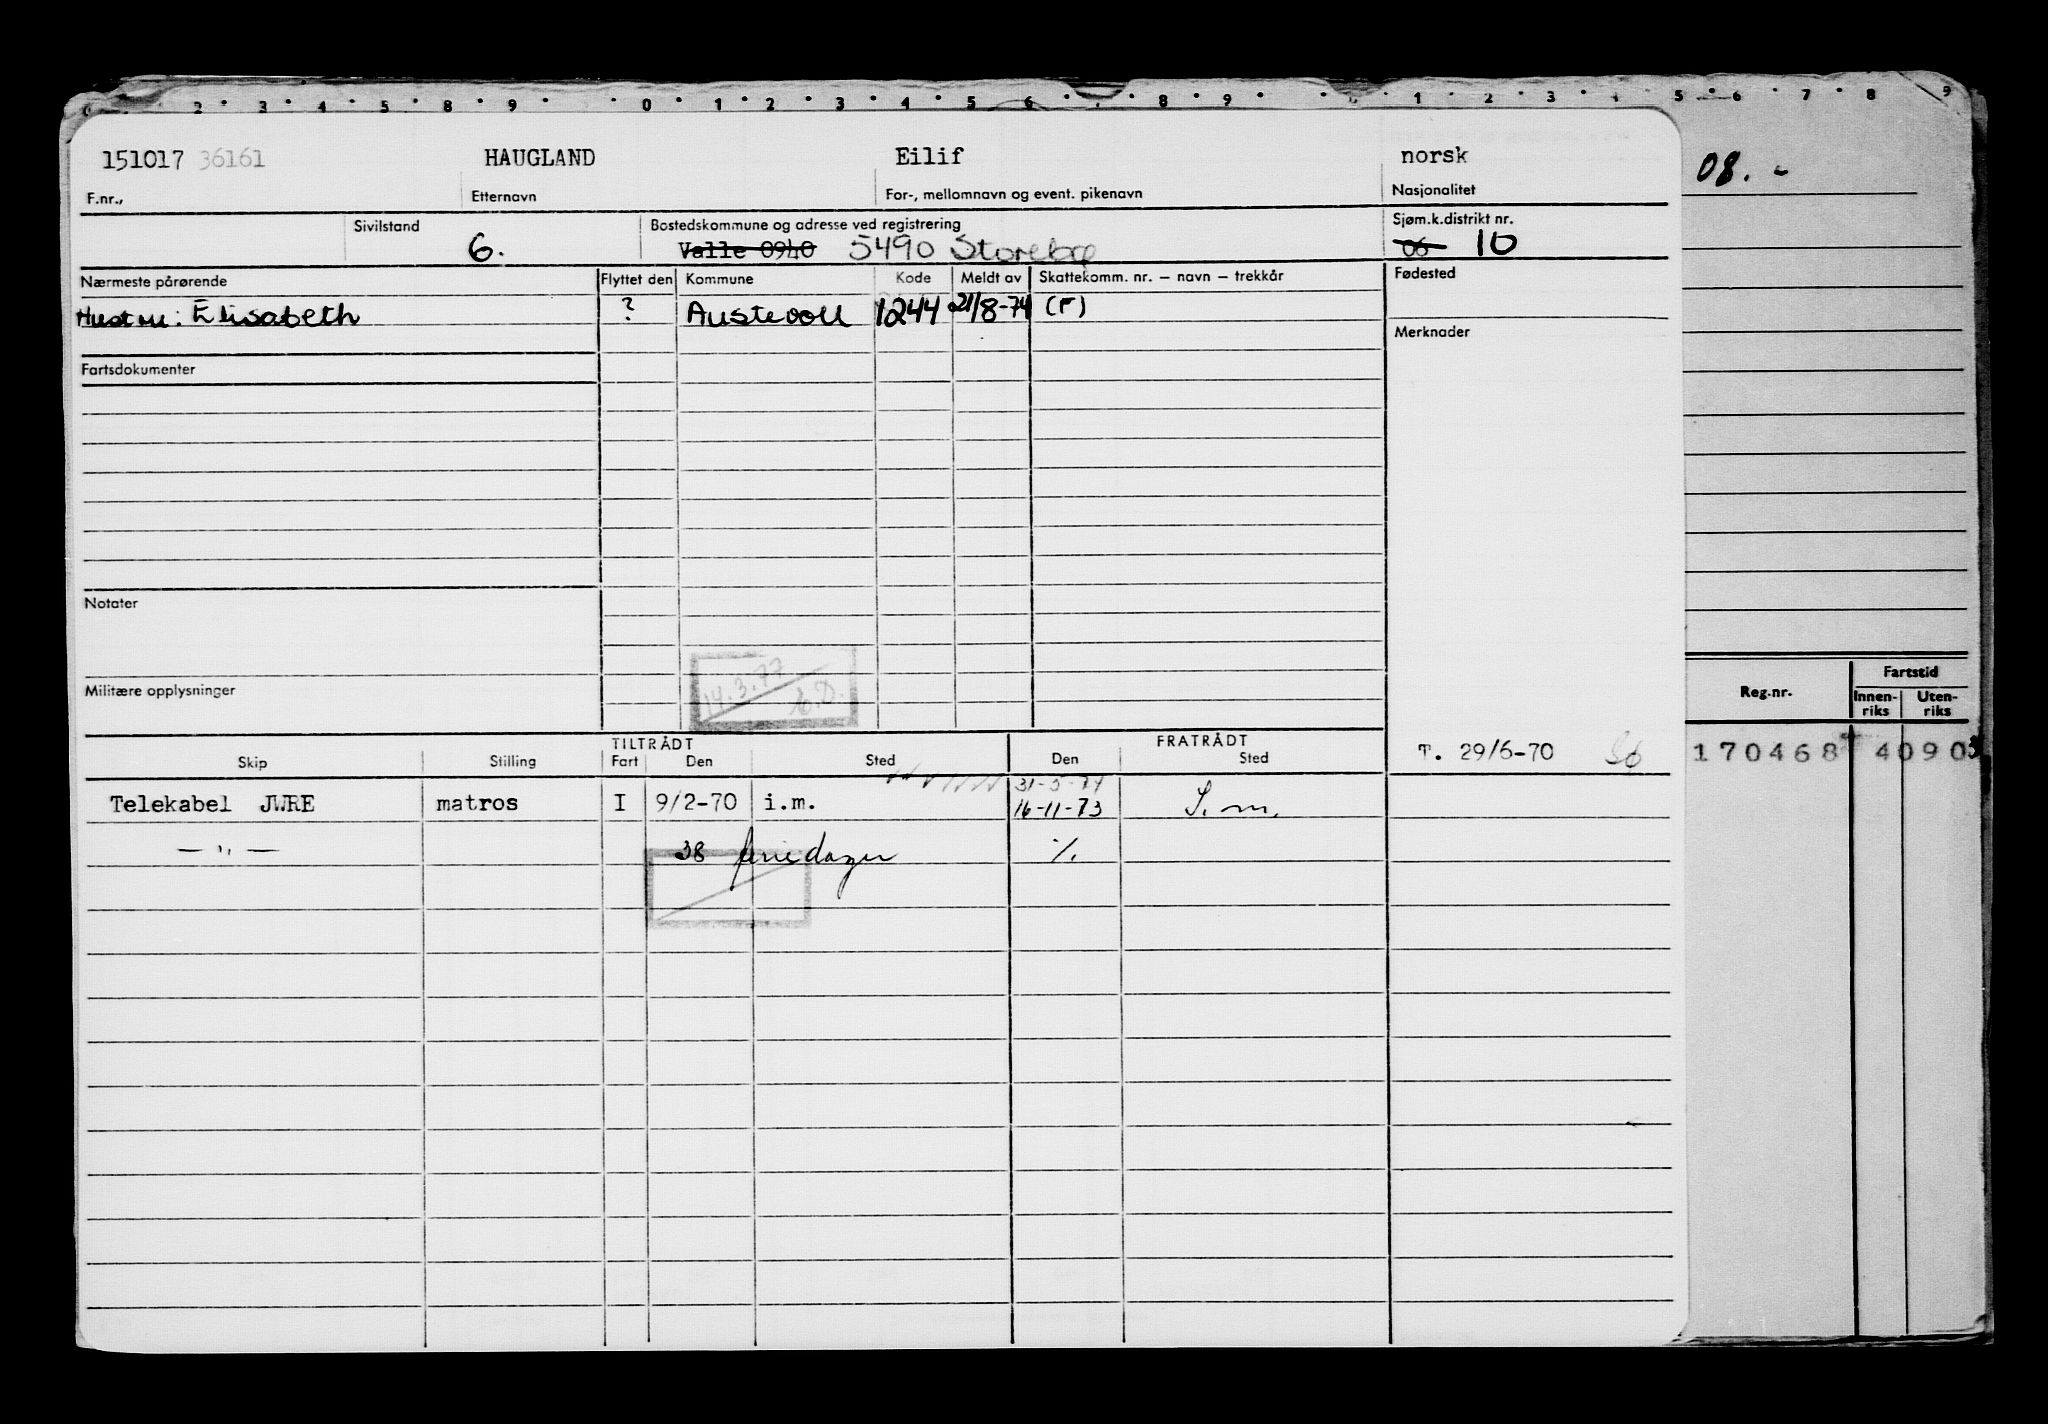 2 3 4 5 8 9 0 1 2 3 4 5 6 7 8 9 1 2 3 4 5 6 7 8 9
151017 36161 HAUGLAND Eilif norsk
F.nr., Etternavn For-, mellomnavn og event. pikenavn Nasjonalitet
08. -
Sivilstand 6.
Bostedskommune og adresse ved registrering
Valle 0940 5490 Storebø
Sjøm.k.distrikt nr.
06 10
Nærmeste pårørende Flyttet den Kommune Kode Meldt av Skattekomm. nr. – navn – trekkår Fødested
Hustru: Elisabeth ? Austevoll 1244 21/8-74 (F)
Merknader
Fartsdokumenter
Notater
14.3.77
Militære opplysninger
Reg.nr. Fartstid
Innen-riks Uten-riks
170468 4090
TILTRÅDT FRATRÅDT
Skip Stilling Fart Den Sted Den Sted
T. 29/6-70
31-5-74
Telekabel JWRE matros I 9/2-70 i.m. 16-11-73 I.m.
— " — 38 feriedager %.